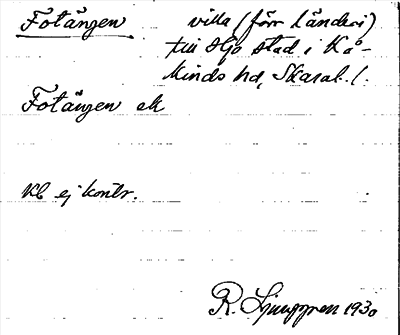 Fotängen villa (förr händeri)
till Hjo stad i Kå-
kinds hd, Skarab. l.
Fotängen ek
Kb ej kontr.
R. Ljunggren 1930